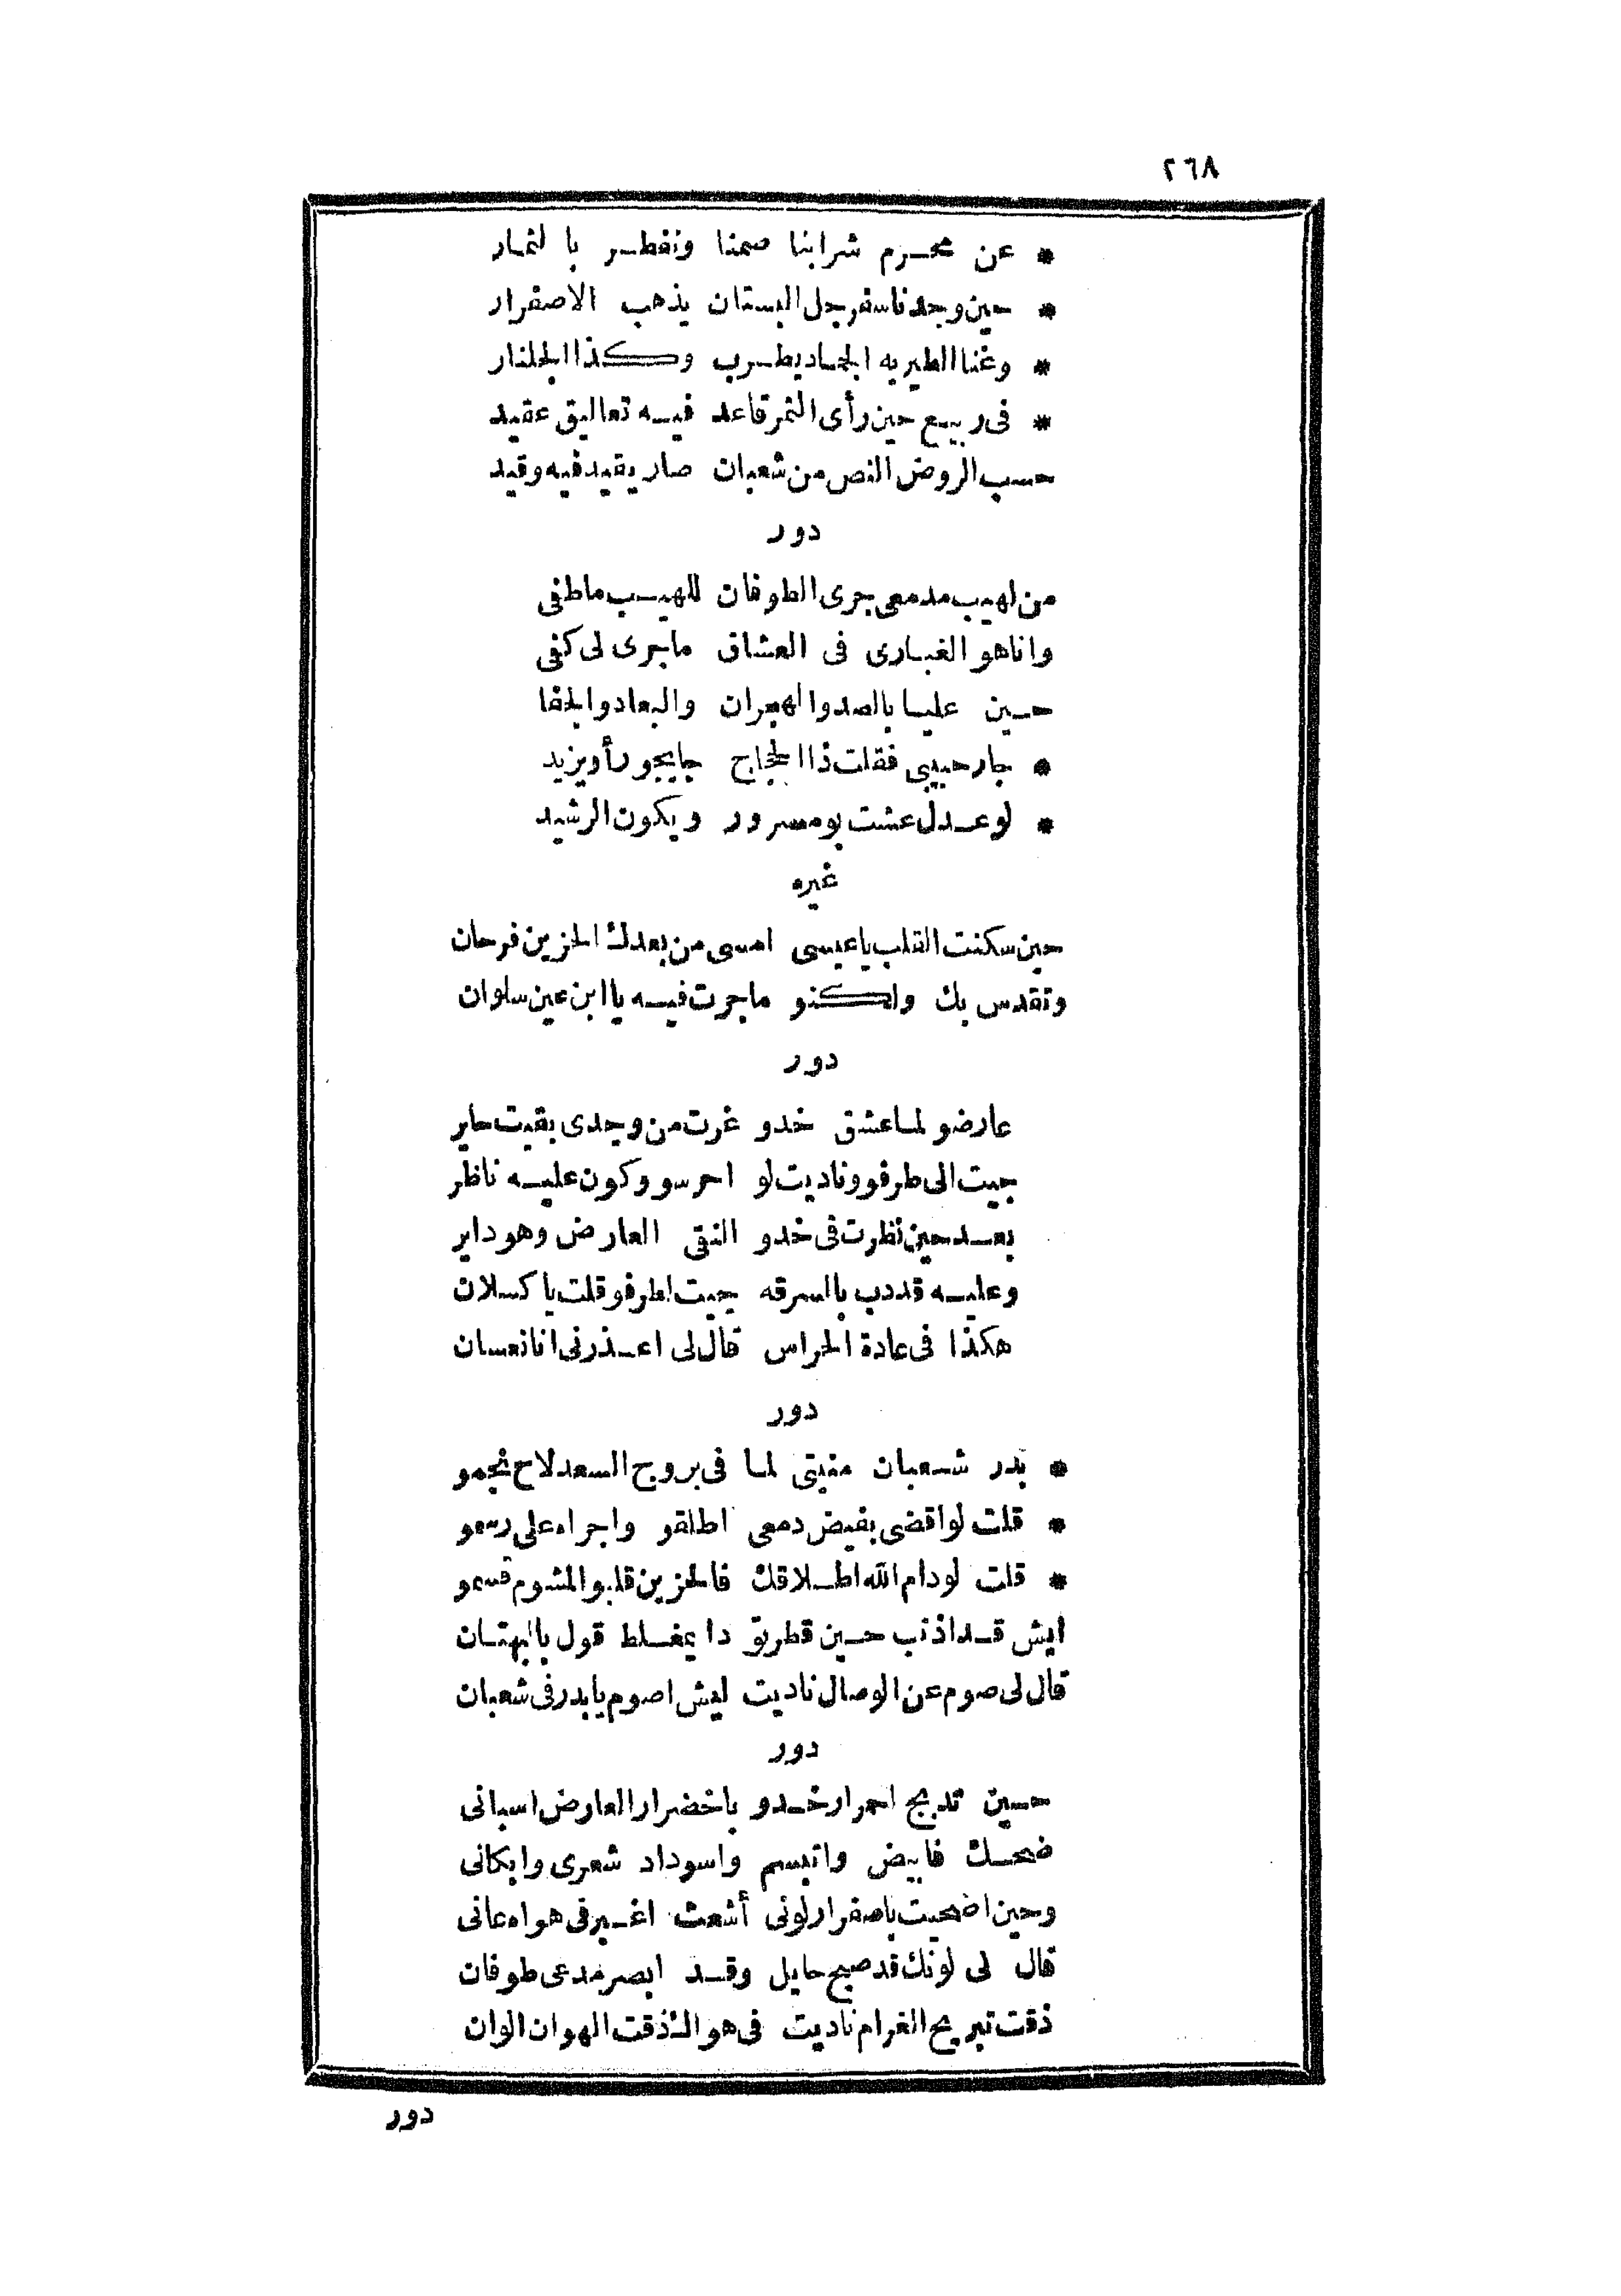 ٢٦٨
* عن محرم شرابنا صمنا ونفطر با لثمار
* حين وجدنا سفرجل البستان يذهب الاصفرار
* وغنا الطير به الجماد يطرب وكذا الجلنار
* فى ربيع حين رأى الثمر قاعد فيه تعاليق عقيد
حسب الروض النص من شعبان صار يقيد فيه وقيد
دور
من لهيب مدمعى جرى الطوفان للهيب ماطفى
وانا هو الغبارى فى العشاق ماجرى لى كفى
حين عليا بالصد والهجران والبعاد والجفا
* جار حبيبى فقلت ذا الحجاج جا يجور أو يزيد
* لو عدل عشت بو مسرور ويكون الرشيد
غيره
حين سكنت القلب يا عيسى امسى من بعدك الحزين فرحان
وتقدس بك ولكنو ماجرت فيه يا ابن عين سلوان
دور
عارضو لما عشق خدو غرت من وجدى بقيت حاير
جيت الى طرفو وناديت لو احرسو وكون عليه ناظر
بعد حين نظرت فى خدو النقى العارض وهو داير
وعليه قد دب بالسرقه جيت لطرفو قلت يا كسلان
هكذا فى عادة الحراس قال لى اعذرنى انا نعسان
دور
* بدر شعبان منيتى لما فى بروج السعد لاح نجمو
* قلت لو اقضى بفيض دمعى اطلقو واجراه على رسمو
* قلت لو دام الله اطلاقك فالحزين قلبو المشوم قسمو
ايش قد اذنب حين قطر يوق دا يغلط قول بالبهتان
قال لى صوم عن الوصال ناديت ليش اصوم يا بدر فى شعبان
دور
حين تدبج احمرار خدو باخضرار العارض اسبانى
ضحك فابيض واتبسم واسوداد شعرى وابكانى
وحين اضحيت باصفرار لونى أشعث اغبر فى هواه عانى
قال لى لونك قد صبح حايل وقد ابصر مدمعى طوفان
ذقت تبريح الغرام ناديت فى هواك ذقت الهوان الوان
دور